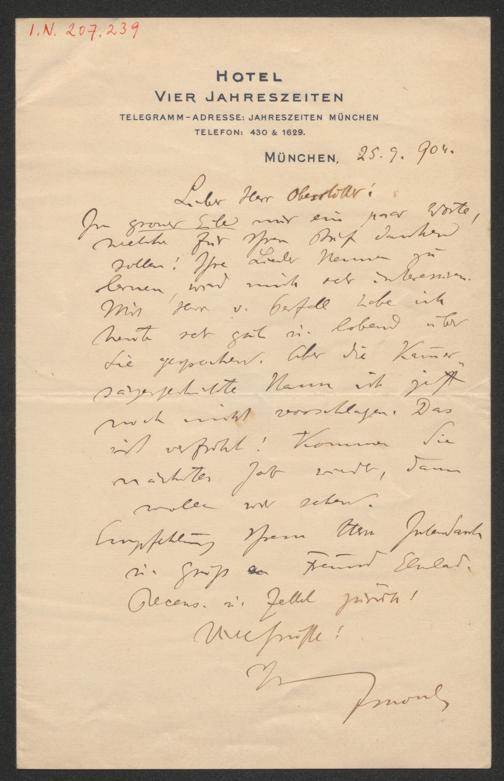 I.N. 207.239
HOTEL
VIER JAHRESZEITEN
TELEGRAMM-ADRESSE: JAHRESZEITEN MÜNCHEN
TELEFON: 430 & 1629.
MÜNCHEN, 25. 9. 904.
Lieber Herr
In grosser Eile nur ein paar Worte,
welche für Ihren Brief danken
sollen! Ihre Lieder kennen zu
lernen wird mich sehr interessiren.
Mit Herr v. habe ich
heute sehr gut u. lobend über
Sie gesprochen. Aber die Kammer
kann ich jetzt
noch nicht vorschlagen. Das
ist verfrüht! Kommen Sie
nächstes Jahr wieder, dann
wollen wir sehen.
Empfehlung Ihrem Herrn Intendant
u. Gruß Freund
Recens. u. Zettel zurück!
Grüße!